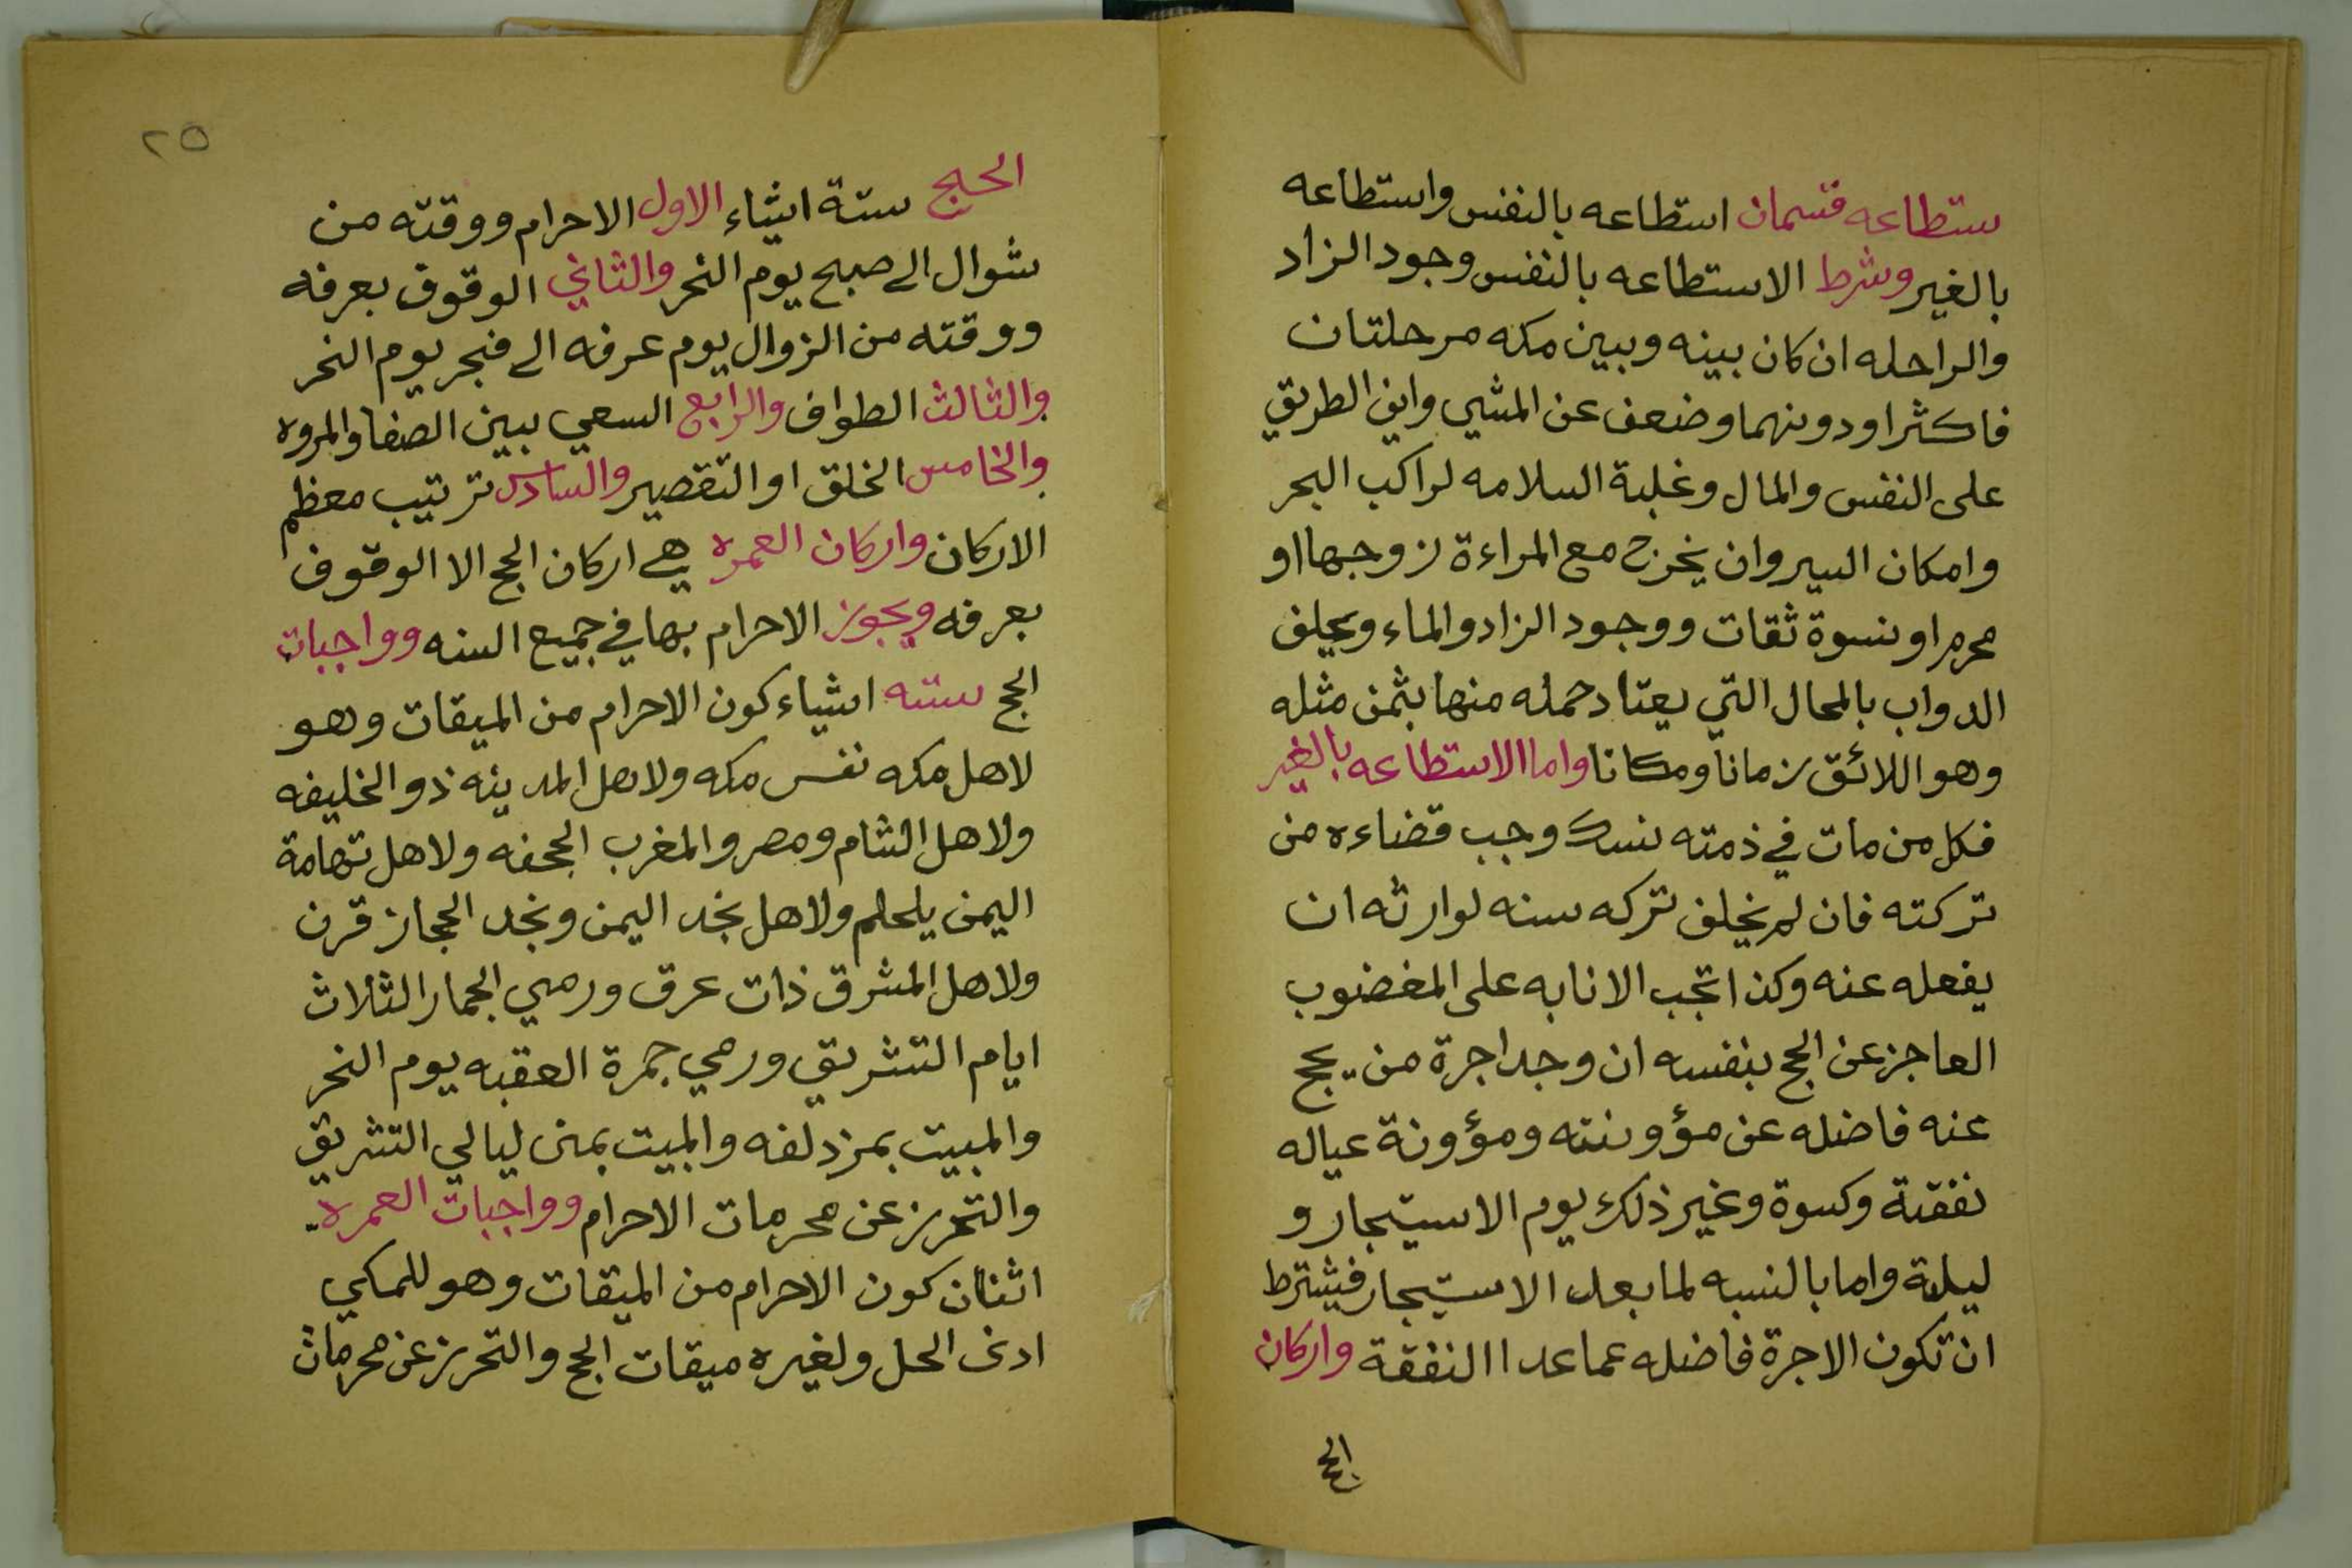 ستطاعه قسمان استطاعه بالنفس واستطاعه
بالغير وشرط الاستطاعه بالنفس وجود الزاد
والراحله ان كان بينه وبين مكه مرحلتان
فاكثر او دونهما وضعف عن المشي وامن الطريق
على النفس والمال وغلبة السلامه لراكب البحر
وامكان السير وان يخرج مع المراءة زوجها او
محرم او نسوة ثقات ووجود الزاد والماء وعلف
الدواب بالمحال التي يعتاد حمله منها بثمن مثله
وهو اللائق زمانا ومكانا واما الاستطاعه بالغير
فكل من مات في ذمته نسك وجب قضاءه من
تركته فان لم يخلف تركه سنه لوارثه ان
يفعله عنه وكذا تجب الانابه على المغضوب
العاجز عن الحج بنفسه ان وجد اجرة من يحج
عنه فاضله عن مؤونته ومؤونة عياله
نفقتة وكسوة وغير ذلك يوم الاستيجار و
ليلة واما بالنسبه لما بعد الاستيجار فيشترط
ان تكون الاجرة فاضله عما عدا النفقة واركان
الحج
٢٥
الحج ستة اشياء الاول الاحرام ووقته من
شوال الى صبح يوم النحر والثاني الوقوف بعرفه
ووقته من الزوال يوم عرفه الى فجر يوم النحر
والثالث الطواف والرابع السعي بين الصفا والمروه
والخامس الخلق او التقصير والسادس ترتيب معظم
الاركان واركان العمره هي اركان الحج الا الوقوف
بعرفه ويجوز الاحرام بها في جميع السنه وواجبات
الحج سته اشياء كون الاحرام من الميقات وهو
لاهل مكه نفس مكه ولاهل المدينه ذو الخليفه
ولاهل الشام ومصر والمغرب الجحفه ولاهل تهامة
اليمن يلملم ولاهل نجد اليمن ونجد الحجاز قرن
ولاهل المشرق ذات عرق ورمي الجمار الثلاث
ايام التشريق ورمي جمرة العقبه يوم النحر
والمبيت بمزدلفه والمبيت بمنى ليالي التشريق
والتحرز عن محرمات الاحرام وواجبات العمره
اثنان كون الاحرام من الميقات وهو للمكي
ادنى الحل ولغيره ميقات الحج والتحرز عن محرمات